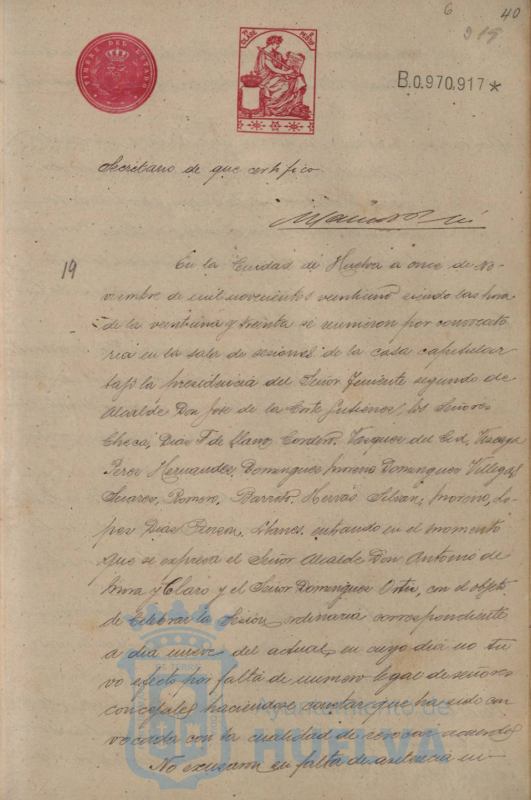 6 40
919
TIMBRE DEL ESTADO
B.0.970.917*
Secretario de que certifico.
19
En la Ciudad de Huelva a once de No-
viembre de mil novecientos veintiuno siendo las hora
de la veintiuna y treinta se reunieron por convocato
ria en la sala de sesiones de la casa capitular
bajo la presidencia del Señor Teniente segundo de
Alcalde Don José de la Corte Gutierrez, los Señores
Checa, Diaz F. de Llano, Cordero, Vazquez del Cid, Vizcaya
Perez Hernandez, Dominguez Moreno, Dominguez Villegas,
Suarez, Romero, Barreto, Hervas, Silvan, Moreno, Lo-
pez Diaz Llanes, entrando en el momento
que se expresa el Señor Alcalde Don Antonio de
Mora y Claro y el Señor Dominguez Ortiz, con el objeto
de celebrar la sesion ordinaria correspondiente
a dia nueve del actual, en cuyo dia no tu
vo efecto por falta de numero legal de señores
concejales haciendose constar que ha sido con
vocada con la cualidad de revocar acuerdos
No excusaron su falta de asistencia nin-
Ayuntamiento de
HUELVA